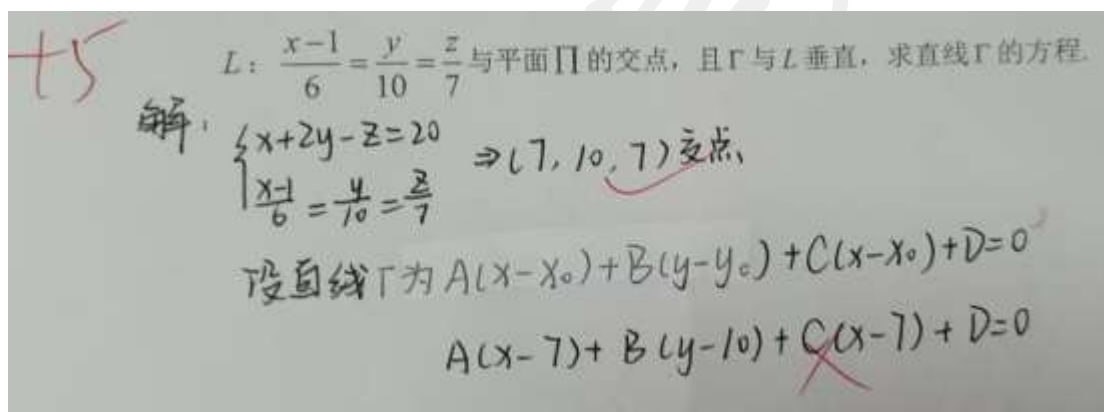 +5
L: (x-1)/6 = y/10 = z/7 与平面∏的交点，且Γ与L垂直，求直线Γ的方程.
解: { x+2y-z=20
(x-1)/6 = y/10 = z/7 ⇒ (7, 10, 7) 交点、
设直线Γ为 A(x-x₀)+B(y-y₀)+C(x-x₀)+D=0
A(x-7)+B(y-10)+C(x-7)+D=0